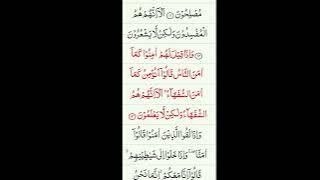 مُصْلِحُوْنَ ۝۱۱ اَلَاۤ اِنَّهُمْ هُمُ
الْمُفْسِدُوْنَ وَلٰكِنْ لَّا يَشْعُرُوْنَ
۝۱۲ وَاِذَا قِيْلَ لَهُمْ اٰمِنُوْا كَمَاۤ
اٰمَنَ النَّاسُ قَالُوْۤا اَنُؤْمِنُ كَمَاۤ
اٰمَنَ السُّفَهَآءُ ؕ اَلَاۤ اِنَّهُمْ هُمُ
السُّفَهَآءُ وَلٰكِنْ لَّا يَعْلَمُوْنَ ۝۱۳
وَاِذَا لَقُوا الَّذِيْنَ اٰمَنُوْا قَالُوْۤا
اٰمَنَّا ۖۚ وَاِذَا خَلَوْا اِلٰى شَيٰطِيْنِهِمْ ۙ
قَالُوْۤا اِنَّا مَعَكُمْ ۙ اِنَّمَا نَحْنُ